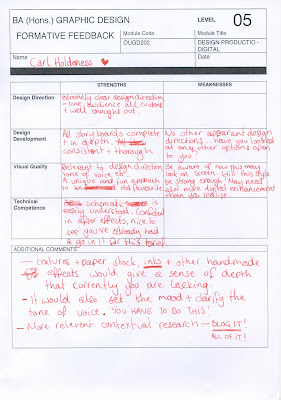 BA (Hons.) GRAPHIC DESIGN
LEVEL 05
FORMATIVE FEEDBACK
Module Code
Module Title
OUGD202
DESIGN PRODUCTIO -
DIGITAL
Name Carl Holderness
Date
STRENGTHS
WEAKNESSES
Design Direction
Extremely clear design direction
- tone, audience all evident
+ well thought out.
Design
Development
All story boards complete
+ in depth.
consistent + thorough
No other apparent design
directions... have you looked
at any other options open
to you?
Visual Quality
Relevent to design direction,
tone of voice etc.
A unique and fun approach
to an old favourite
Be aware of how this may
look on screen. Will this style
be strong enough? May need
alot more digital enhancement
than you realise
Technical
Competence
Schematic is
easily understood. Confident
in after effects, nice to
see you've already had
a go in it for this brief.
ADDITIONAL COMMENTS
- textures + paper stock, inks + other handmade
effects would give a sense of depth
that currently you are lacking.
- It would also set the mood + clarify the
tone of voice. YOU HAVE TO DO THIS!
- More relevent contextual research - BLOG IT!
ALL OF IT!